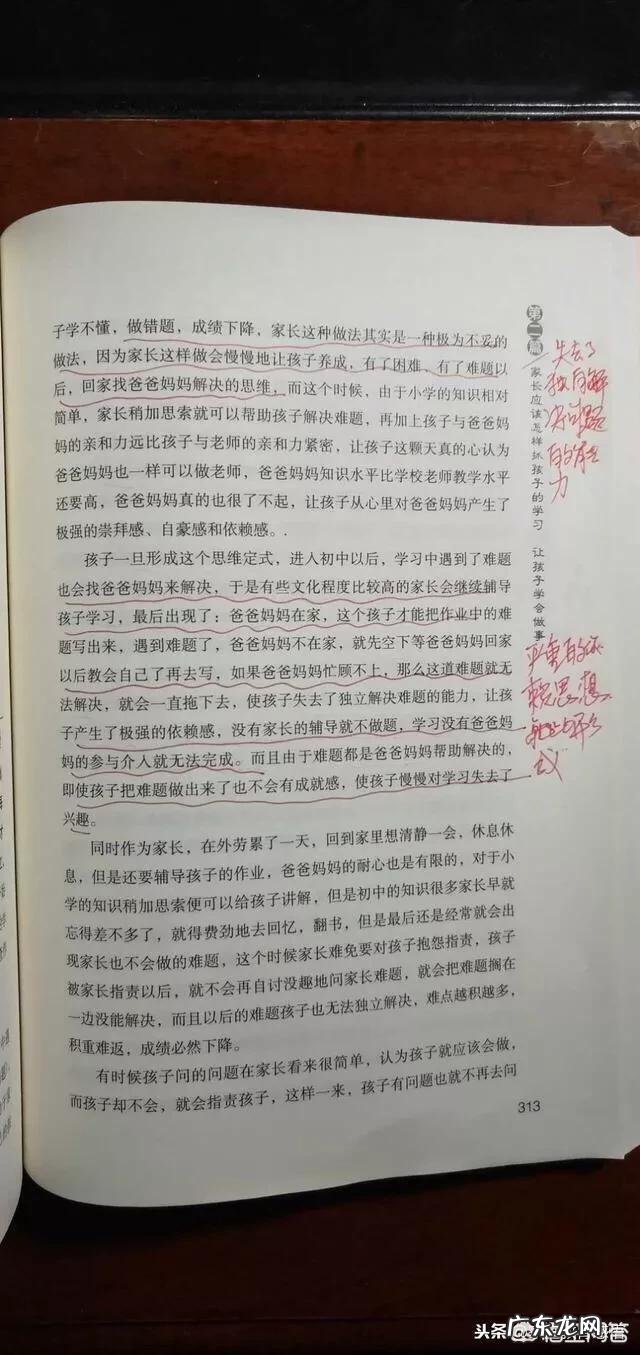 子学不懂，做错题，成绩下降，家长这种做法其实是一种极为不妥的
做法，因为家长这样做会慢慢地让孩子养成，有了困难、有了难题以
后，回家找爸爸妈妈解决的思维，而这个时候，由于小学的知识相对
简单，家长稍加思索就可以帮助孩子解决难题，再加上孩子与爸爸妈
妈的亲和力远比孩子与老师的亲和力紧密，让孩子这颗天真的心认为
爸爸妈妈也一样可以做老师，爸爸妈妈知识水平比学校老师教学水平
还要高，爸爸妈妈真的也很了不起，让孩子从心里对爸爸妈妈产生了
极强的崇拜感、自豪感和依赖感。.
孩子一旦形成这个思维定式，进人初中以后，学习中遇到了难题
也会找爸爸妈妈来解决，于是有些文化程度比较高的家长会继续辅导
孩子学习，最后出现了：爸爸妈妈在家，这个孩子才能把作业中的难
题写出来，遇到难题了，爸爸妈妈不在家，就先空下等爸爸妈妈回家
以后教会自己了再去写，如果爸爸妈妈忙顾不上，那么这道难题就无
法解决，就会一直拖下去，使孩子失去了独立解决难题的能力，让孩
子产生了极强的依赖感，没有家长的辅导就不做题，学习没有爸爸妈
妈的参与介人就无法完成。而且由于难题都是爸爸妈妈帮助解决的，
即使孩子把难题做出来了也不会有成就感，使孩子慢慢对学习失去了
兴趣。
同时作为家长，在外劳累了一天，回到家里想清静一会，休息休
息，但是还要辅导孩子的作业，爸爸妈妈的耐心也是有限的，对于小
学的知识稍加思索便可以给孩子讲解，但是初中的知识很多家长早就
忘得差不多了，就得费劲地去回忆，翻书，但是最后还是经常就会出
现家长也不会做的难题，这个时候家长难免要对孩子抱怨指责，孩子
被家长指责以后，就不会再自讨没趣地问家长难题，就会把难题搁在
一边没能解决，而且以后的难题孩子也无法独立解决，难点越积越多，
积重难返，成绩必然下降。
有时候孩子问的问题在家长看来很简单，认为孩子就应该会做，
而孩子却不会，就会指责孩子，这样一来，孩子有问题也就不再去问
313
第二篇
家长应该怎样抓孩子的学习 让孩子学会做事
失去了
独自解
力
思想
头条
广东龙网